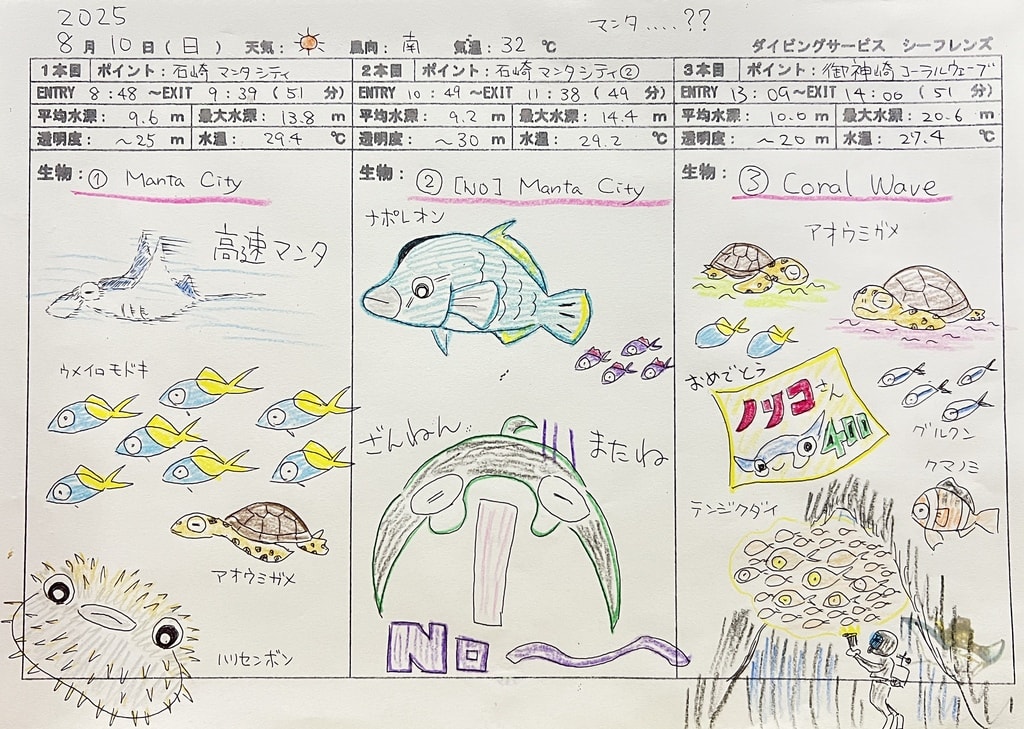 2025
マンタ.....??
8月10日(日) 天気: 風向:南 気温:32℃
ダイビングサービス シーフレンズ
1本目 ポイント:石崎 マンタシティ
ENTRY 8:48 ~EXIT 9:39 (51 分)
平均水深: 9.6 m 最大水深: 13.8 m
透明度: ~25 m 水温: 29.4 ℃
生物: ① Manta City
高速マンタ
ウメイロモドキ
アオウミガメ
ハリセンボン
2本目 ポイント:石崎 マンタシティ②
ENTRY 10:49 ~EXIT 11:38 (49 分)
平均水深: 9.2 m 最大水深: 14.4 m
透明度: ~30 m 水温: 29.2 ℃
生物: ② [NO] Manta City
ナポレオン
ざんねん!!
またね
No
3本目 ポイント:御神崎 コーラルウェーブ
ENTRY 13:09 ~EXIT 14:00 (51 分)
平均水深: 10.0 m 最大水深: 20.6 m
透明度: ~20 m 水温: 27.4 ℃
生物: ③ Coral Wave
アオウミガメ
おめでとう
ノリコさん
400
グルクン
クマノミ
テンジクダイ